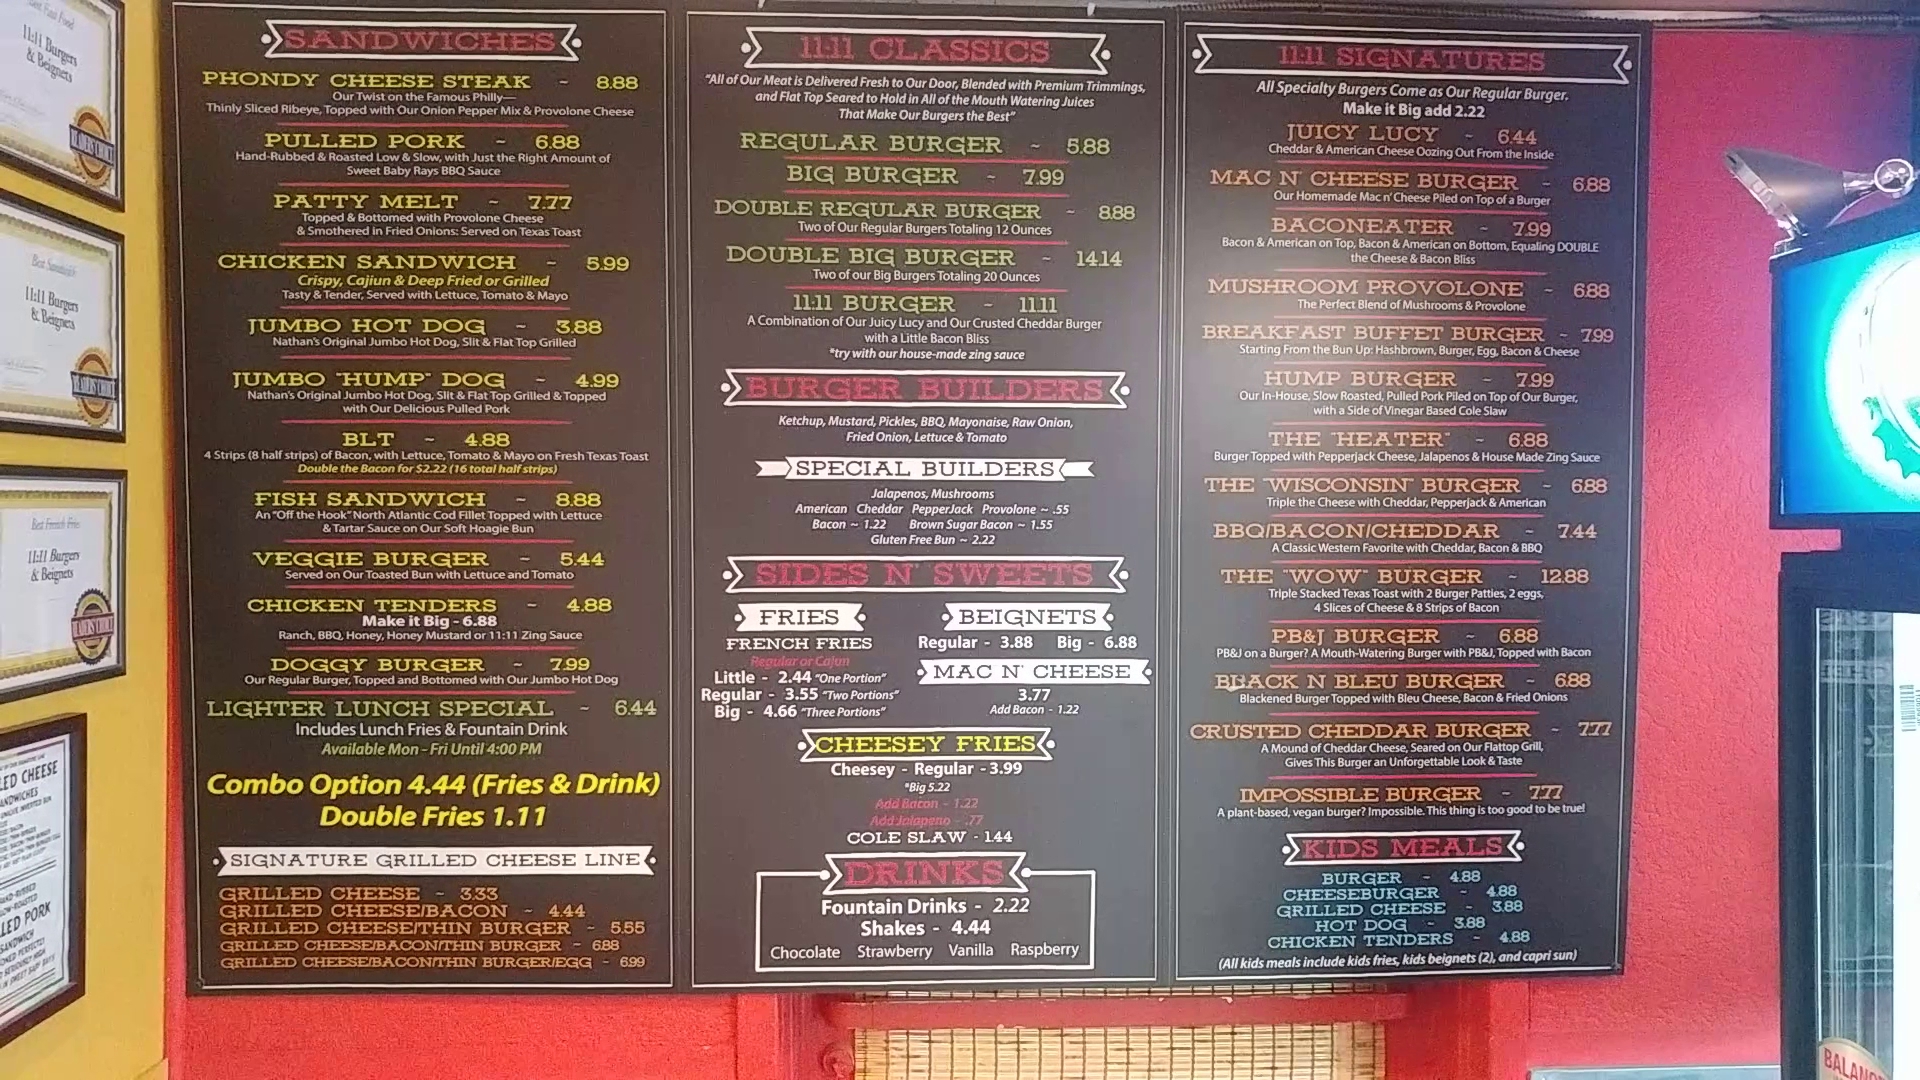 Best Fast Food
11:11 Burgers
& Beignets
READERS CHOICE
Best Sandwich
11:11 Burgers
& Beignets
READERS CHOICE
Best French Fries
11:11 Burgers
& Beignets
READERS CHOICE
LED CHEESE
PORK
SANDWICHES
PHONDY CHEESE STEAK ~ 8.88
Our Twist on the Famous Philly—
Thinly Sliced Ribeye, Topped with Our Onion Pepper Mix & Provolone Cheese
PULLED PORK ~ 6.88
Hand-Rubbed & Roasted Low & Slow, with Just the Right Amount of
Sweet Baby Rays BBQ Sauce
PATTY MELT ~ 7.77
Topped & Bottomed with Provolone Cheese
& Smothered in Fried Onions: Served on Texas Toast
CHICKEN SANDWICH ~ 5.99
Crispy, Cajiun & Deep Fried or Grilled
Tasty & Tender, Served with Lettuce, Tomato & Mayo
JUMBO HOT DOG ~ 3.88
Nathan's Original Jumbo Hot Dog, Slit & Flat Top Grilled
JUMBO "HUMP" DOG ~ 4.99
Nathan's Original Jumbo Hot Dog, Slit & Flat Top Grilled & Topped
with Our Delicious Pulled Pork
BLT ~ 4.88
4 Strips (8 half strips) of Bacon, with Lettuce, Tomato & Mayo on Fresh Texas Toast
Double the Bacon for $2.22 (16 total half strips)
FISH SANDWICH ~ 8.88
An "Off the Hook" North Atlantic Cod Fillet Topped with Lettuce
& Tartar Sauce on Our Soft Hoagie Bun
VEGGIE BURGER ~ 5.44
Served on Our Toasted Bun with Lettuce and Tomato
CHICKEN TENDERS ~ 4.88
Make it Big - 6.88
Ranch, BBQ, Honey, Honey Mustard or 11:11 Zing Sauce
DOGGY BURGER ~ 7.99
Our Regular Burger, Topped and Bottomed with Our Jumbo Hot Dog
LIGHTER LUNCH SPECIAL ~ 6.44
Includes Lunch Fries & Fountain Drink
Available Mon - Fri Until 4:00 PM
Combo Option 4.44 (Fries & Drink)
Double Fries 1.11
SIGNATURE GRILLED CHEESE LINE
GRILLED CHEESE ~ 3.33
GRILLED CHEESE/BACON ~ 4.44
GRILLED CHEESE/THIN BURGER ~ 5.55
GRILLED CHEESE/BACON/THIN BURGER ~ 6.88
GRILLED CHEESE/BACON/THIN BURGER/EGG ~ 6.99
11:11 CLASSICS
"All of Our Meat is Delivered Fresh to Our Door, Blended with Premium Trimmings,
and Flat Top Seared to Hold in All of the Mouth Watering Juices
That Make Our Burgers the Best"
REGULAR BURGER ~ 5.88
BIG BURGER ~ 7.99
DOUBLE REGULAR BURGER ~ 8.88
Two of Our Regular Burgers Totaling 12 Ounces
DOUBLE BIG BURGER ~ 14.14
Two of our Big Burgers Totaling 20 Ounces
11:11 BURGER ~ 11.11
A Combination of Our Juicy Lucy and Our Crusted Cheddar Burger
with a Little Bacon Bliss
*try with our house-made zing sauce
BURGER BUILDERS
Ketchup, Mustard, Pickles, BBQ, Mayonaise, Raw Onion,
Fried Onion, Lettuce & Tomato
SPECIAL BUILDERS
Jalapenos, Mushrooms
American Cheddar PepperJack Provolone ~ .55
Bacon ~ 1.22 Brown Sugar Bacon ~ 1.55
Gluten Free Bun ~ 2.22
SIDES N' SWEETS
FRIES
FRENCH FRIES
Regular or Cajun
Little - 2.44 "One Portion"
Regular - 3.55 "Two Portions"
Big - 4.66 "Three Portions"
BEIGNETS
Regular - 3.88 Big - 6.88
MAC N' CHEESE
3.77
Add Bacon - 1.22
CHEESEY FRIES
Cheesey - Regular - 3.99
*Big 5.22
Add Bacon - 1.22
Add Jalapeno - .77
COLE SLAW - 1.44
DRINKS
Fountain Drinks - 2.22
Shakes - 4.44
Chocolate Strawberry Vanilla Raspberry
11:11 SIGNATURES
All Specialty Burgers Come as Our Regular Burger.
Make it Big add 2.22
JUICY LUCY ~ 6.44
Cheddar & American Cheese Oozing Out From the Inside
MAC N' CHEESE BURGER ~ 6.88
Our Homemade Mac n' Cheese Piled on Top of a Burger
BACONEATER ~ 7.99
Bacon & American on Top, Bacon & American on Bottom, Equaling DOUBLE
the Cheese & Bacon Bliss
MUSHROOM PROVOLONE ~ 6.88
The Perfect Blend of Mushrooms & Provolone
BREAKFAST BUFFET BURGER ~ 7.99
Starting From the Bun Up: Hashbrown, Burger, Egg, Bacon & Cheese
HUMP BURGER ~ 7.99
Our In-House, Slow Roasted, Pulled Pork Piled on Top of Our Burger,
with a Side of Vinegar Based Cole Slaw
THE "HEATER" ~ 6.88
Burger Topped with Pepperjack Cheese, Jalapenos & House Made Zing Sauce
THE "WISCONSIN" BURGER ~ 6.88
Triple the Cheese with Cheddar, Pepperjack & American
BBQ/BACON/CHEDDAR ~ 7.44
A Classic Western Favorite with Cheddar, Bacon & BBQ
THE "WOW" BURGER ~ 12.88
Triple Stacked Texas Toast with 2 Burger Patties, 2 eggs,
4 Slices of Cheese & 8 Strips of Bacon
PB&J BURGER ~ 6.88
PB&J on a Burger? A Mouth-Watering Burger with PB&J, Topped with Bacon
BLACK N BLEU BURGER ~ 6.88
Blackened Burger Topped with Bleu Cheese, Bacon & Fried Onions
CRUSTED CHEDDAR BURGER ~ 7.77
A Mound of Cheddar Cheese, Seared on Our Flattop Grill,
Gives This Burger an Unforgettable Look & Taste
IMPOSSIBLE BURGER ~ 7.77
A plant-based, vegan burger? Impossible. This thing is too good to be true!
KIDS MEALS
BURGER ~ 4.88
CHEESEBURGER ~ 4.88
GRILLED CHEESE ~ 3.88
HOT DOG ~ 3.88
CHICKEN TENDERS ~ 4.88
(All kids meals include kids fries, kids beignets (2), and capri sun)